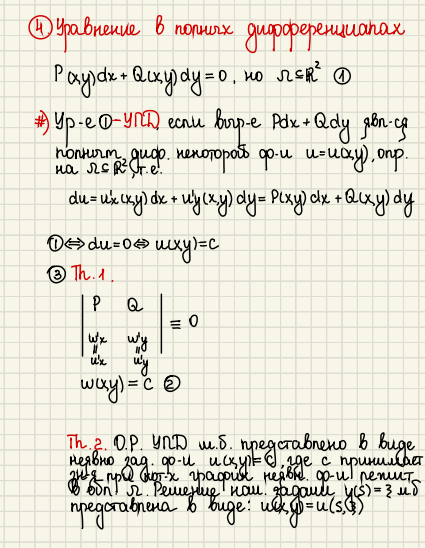 ④ Уравнение в полных дифференциалах
P(x,y)dx + Q(x,y)dy = 0, на Ω ⊆ ℝ² ①
#) Ур-е ① – УПД, если выр-е Pdx + Qdy явл-ся
полным диф. некоторой ф-и u = u(x,y), опр.
на Ω ⊆ ℝ², т.е.
du = u'x(x,y)dx + u'y(x,y)dy = P(x,y)dx + Q(x,y)dy
① ⇔ du = 0 ⇔ u(x,y) = C
③ Th.1.
| P Q |
≡ 0
| w'x w'y |
= =
u'x u'y
w(x,y) = C ②
Th.2. О.Р. УПД м.б. представлено в виде
неявно зад. ф-и u(x,y)=C, где c принимает
зн-я при кот-х график неявн. ф-и лежит
в обл. Ω. Решение нач. задачи y(s) = ξ м.б
представлена в виде: u(x,y) = u(s,ξ)